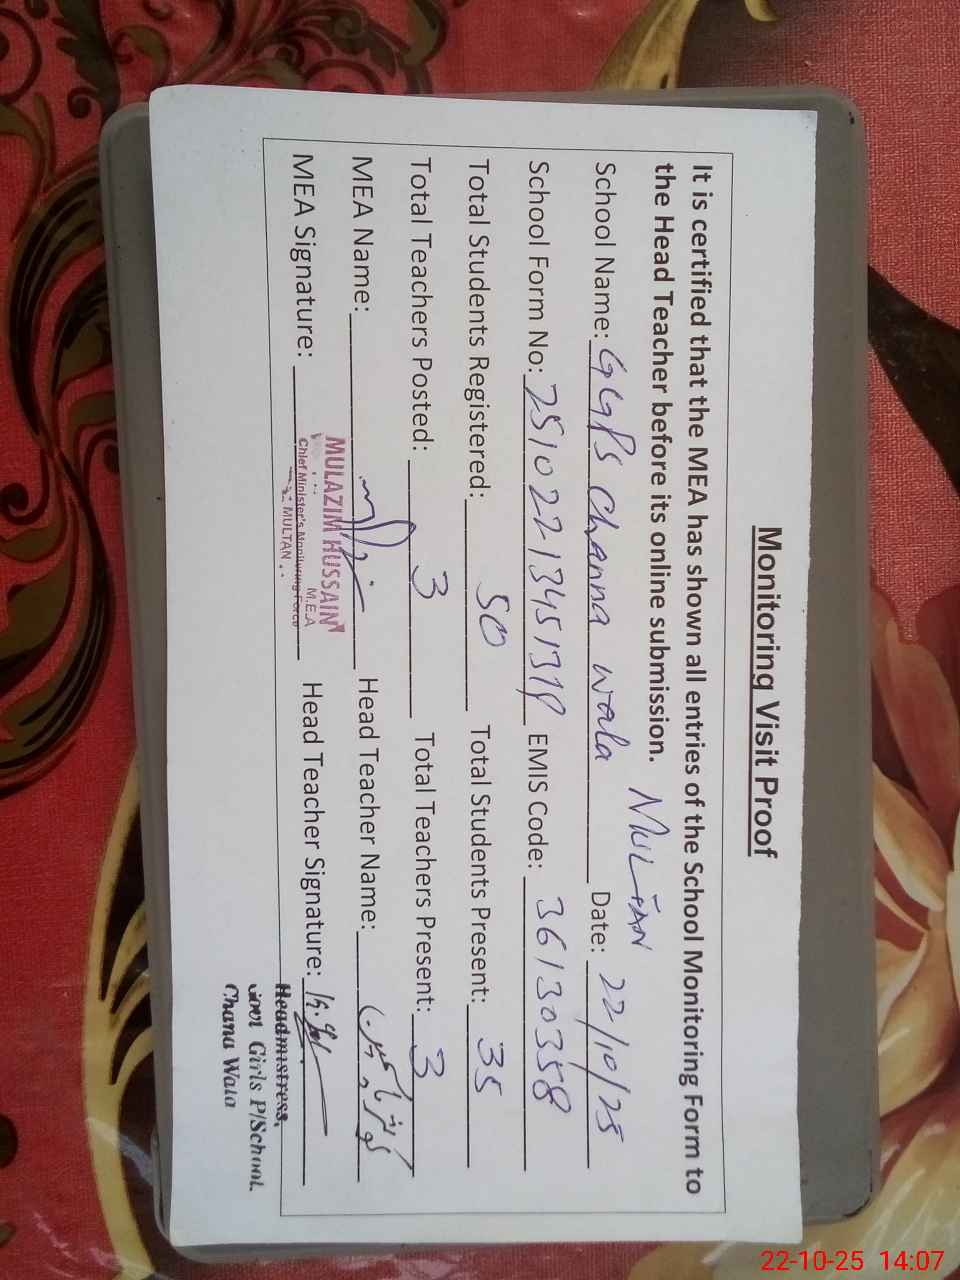 Monitoring Visit Proof
It is certified that the MEA has shown all entries of the School Monitoring Form to
the Head Teacher before its online submission. MULTAN
School Name: GGPS Channa wala Date: 22/10/25
School Form No: EMIS Code: 36130358
Total Students Registered: 50 Total Students Present: 35
Total Teachers Posted: 3 Total Teachers Present: 3
MEA Name: Head Teacher Name:
MEA Signature: Head Teacher Signature:
MULAZIM HUSSAIN
M.E.A
Chief Minister's Monitoring Force
MULTAN
Headmistress,
Govt Girls P/School.
Chana Wala
22-10-25 14:07